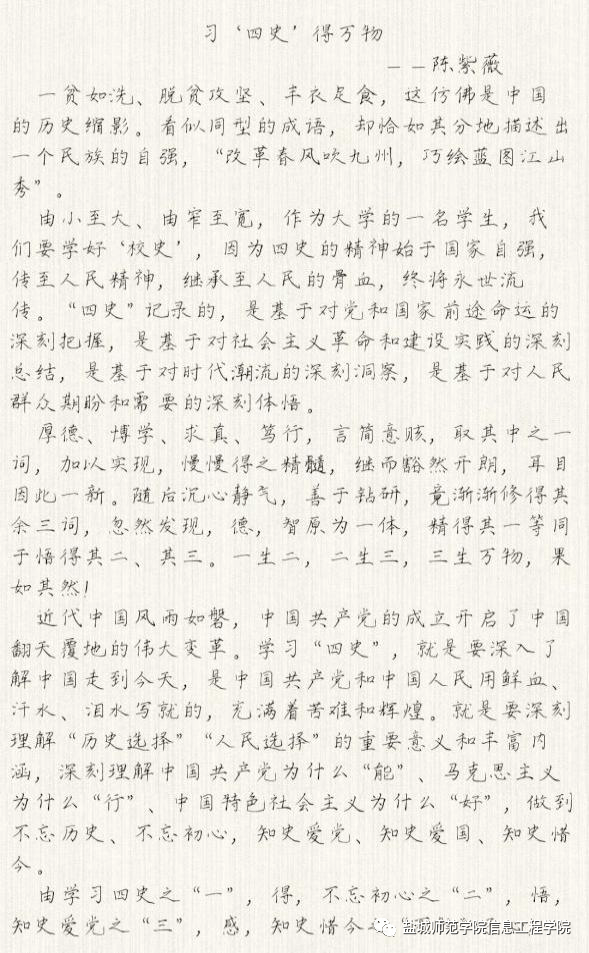 习‘四史’得万物
——陈紫薇
一贫如洗、脱贫攻坚、丰衣足食，这仿佛是中国
的历史缩影。看似同型的成语，却恰如其分地描述出
一个民族的自强，“改革春风吹九州，巧绘蓝图江山
秀”。
由小至大、由窄至宽，作为大学的一名学生，我
们要学好‘校史’，因为四史的精神始于国家自强，
传至人民精神，继承至人民的骨血，终将永世流
传。“四史”记录的，是基于对党和国家前途命运的
深刻把握，是基于对社会主义革命和建设实践的深刻
总结，是基于对时代潮流的深刻洞察，是基于对人民
群众期盼和需要的深刻体悟。
厚德、博学、求真、笃行，言简意赅，取其中之一
词，加以实现，慢慢得之精髓，继而豁然开朗，耳目
因此一新。随后沉心静气，善于钻研，竟渐渐修得其
余三词，忽然发现，德，智原为一体，精得其一等同
于悟得其二、其三。一生二，二生三，三生万物，果
如其然！
近代中国风雨如磐，中国共产党的成立开启了中国
翻天覆地的伟大变革。学习“四史”，就是要深入了
解中国走到今天，是中国共产党和中国人民用鲜血、
汗水、泪水写就的，充满着苦难和辉煌。就是要深刻
理解“历史选择”“人民选择”的重要意义和丰富内
涵，深刻理解中国共产党为什么“能”、马克思主义
为什么“行”、中国特色社会主义为什么“好”，做到
不忘历史、不忘初心，知史爱党、知史爱国、知史惜
今。
由学习四史之“一”，得，不忘初心之“二”，悟，
知史爱党之“三”，感，知史惜今之
盐城师范学院信息工程学院